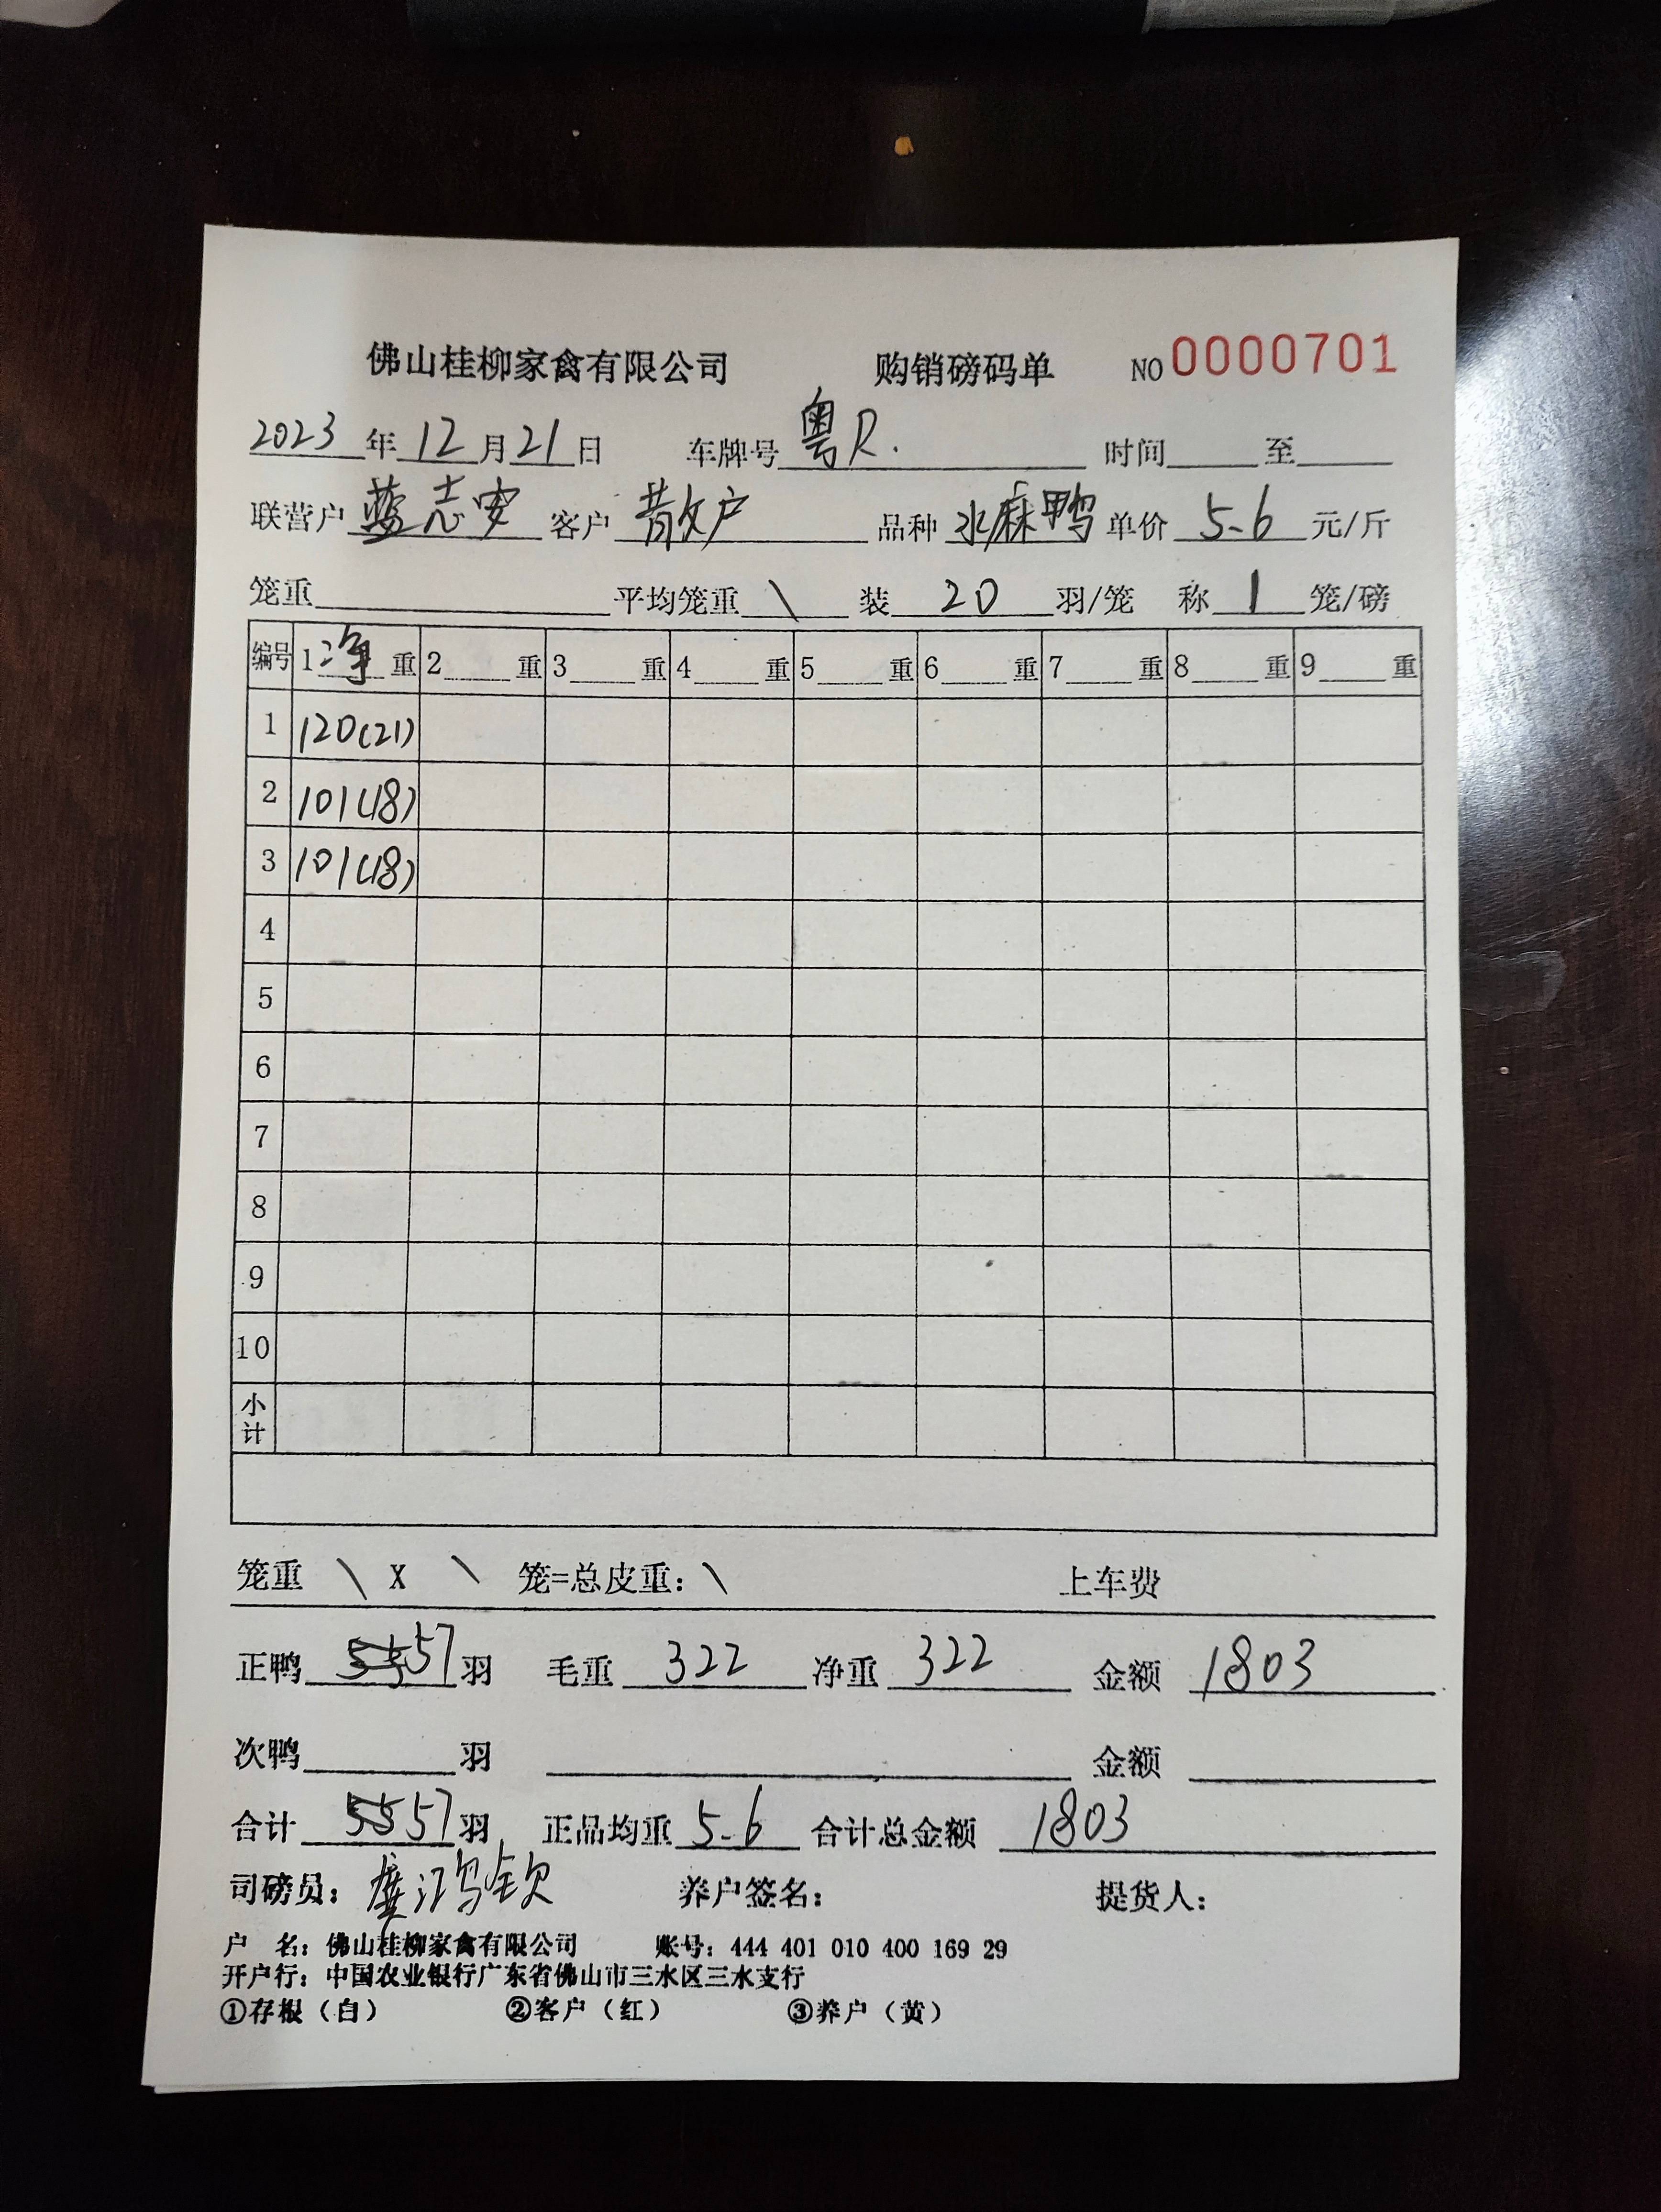 佛山桂柳家禽有限公司 购销磅码单 NO 0000701
2023年12月21日 车牌号 粤R. 时间 至
联营户 蓝志安 客户 散户 品种 水麻鸭 单价 5.6 元/斤
笼重 平均笼重 \ 装 20 羽/笼 称 1 笼/磅
编号 1 净 重 2 重 3 重 4 重 5 重 6 重 7 重 8 重 9 重
1 120(21)
2 101(18)
3 101(18)
4
5
6
7
8
9
10
小计
笼重 \ X \ 笼=总皮重: \ 上车费
正鸭 57 羽 毛重 322 净重 322 金额 1803
次鸭 羽 金额
合计 57 羽 正品均重 5.6 合计总金额 1803
司磅员: 鸿钦 养户签名: 提货人:
户 名: 佛山桂柳家禽有限公司 账号: 444 401 010 400 169 29
开户行: 中国农业银行广东省佛山市三水区三水支行
①存根(白) ②客户(红) ③养户(黄)